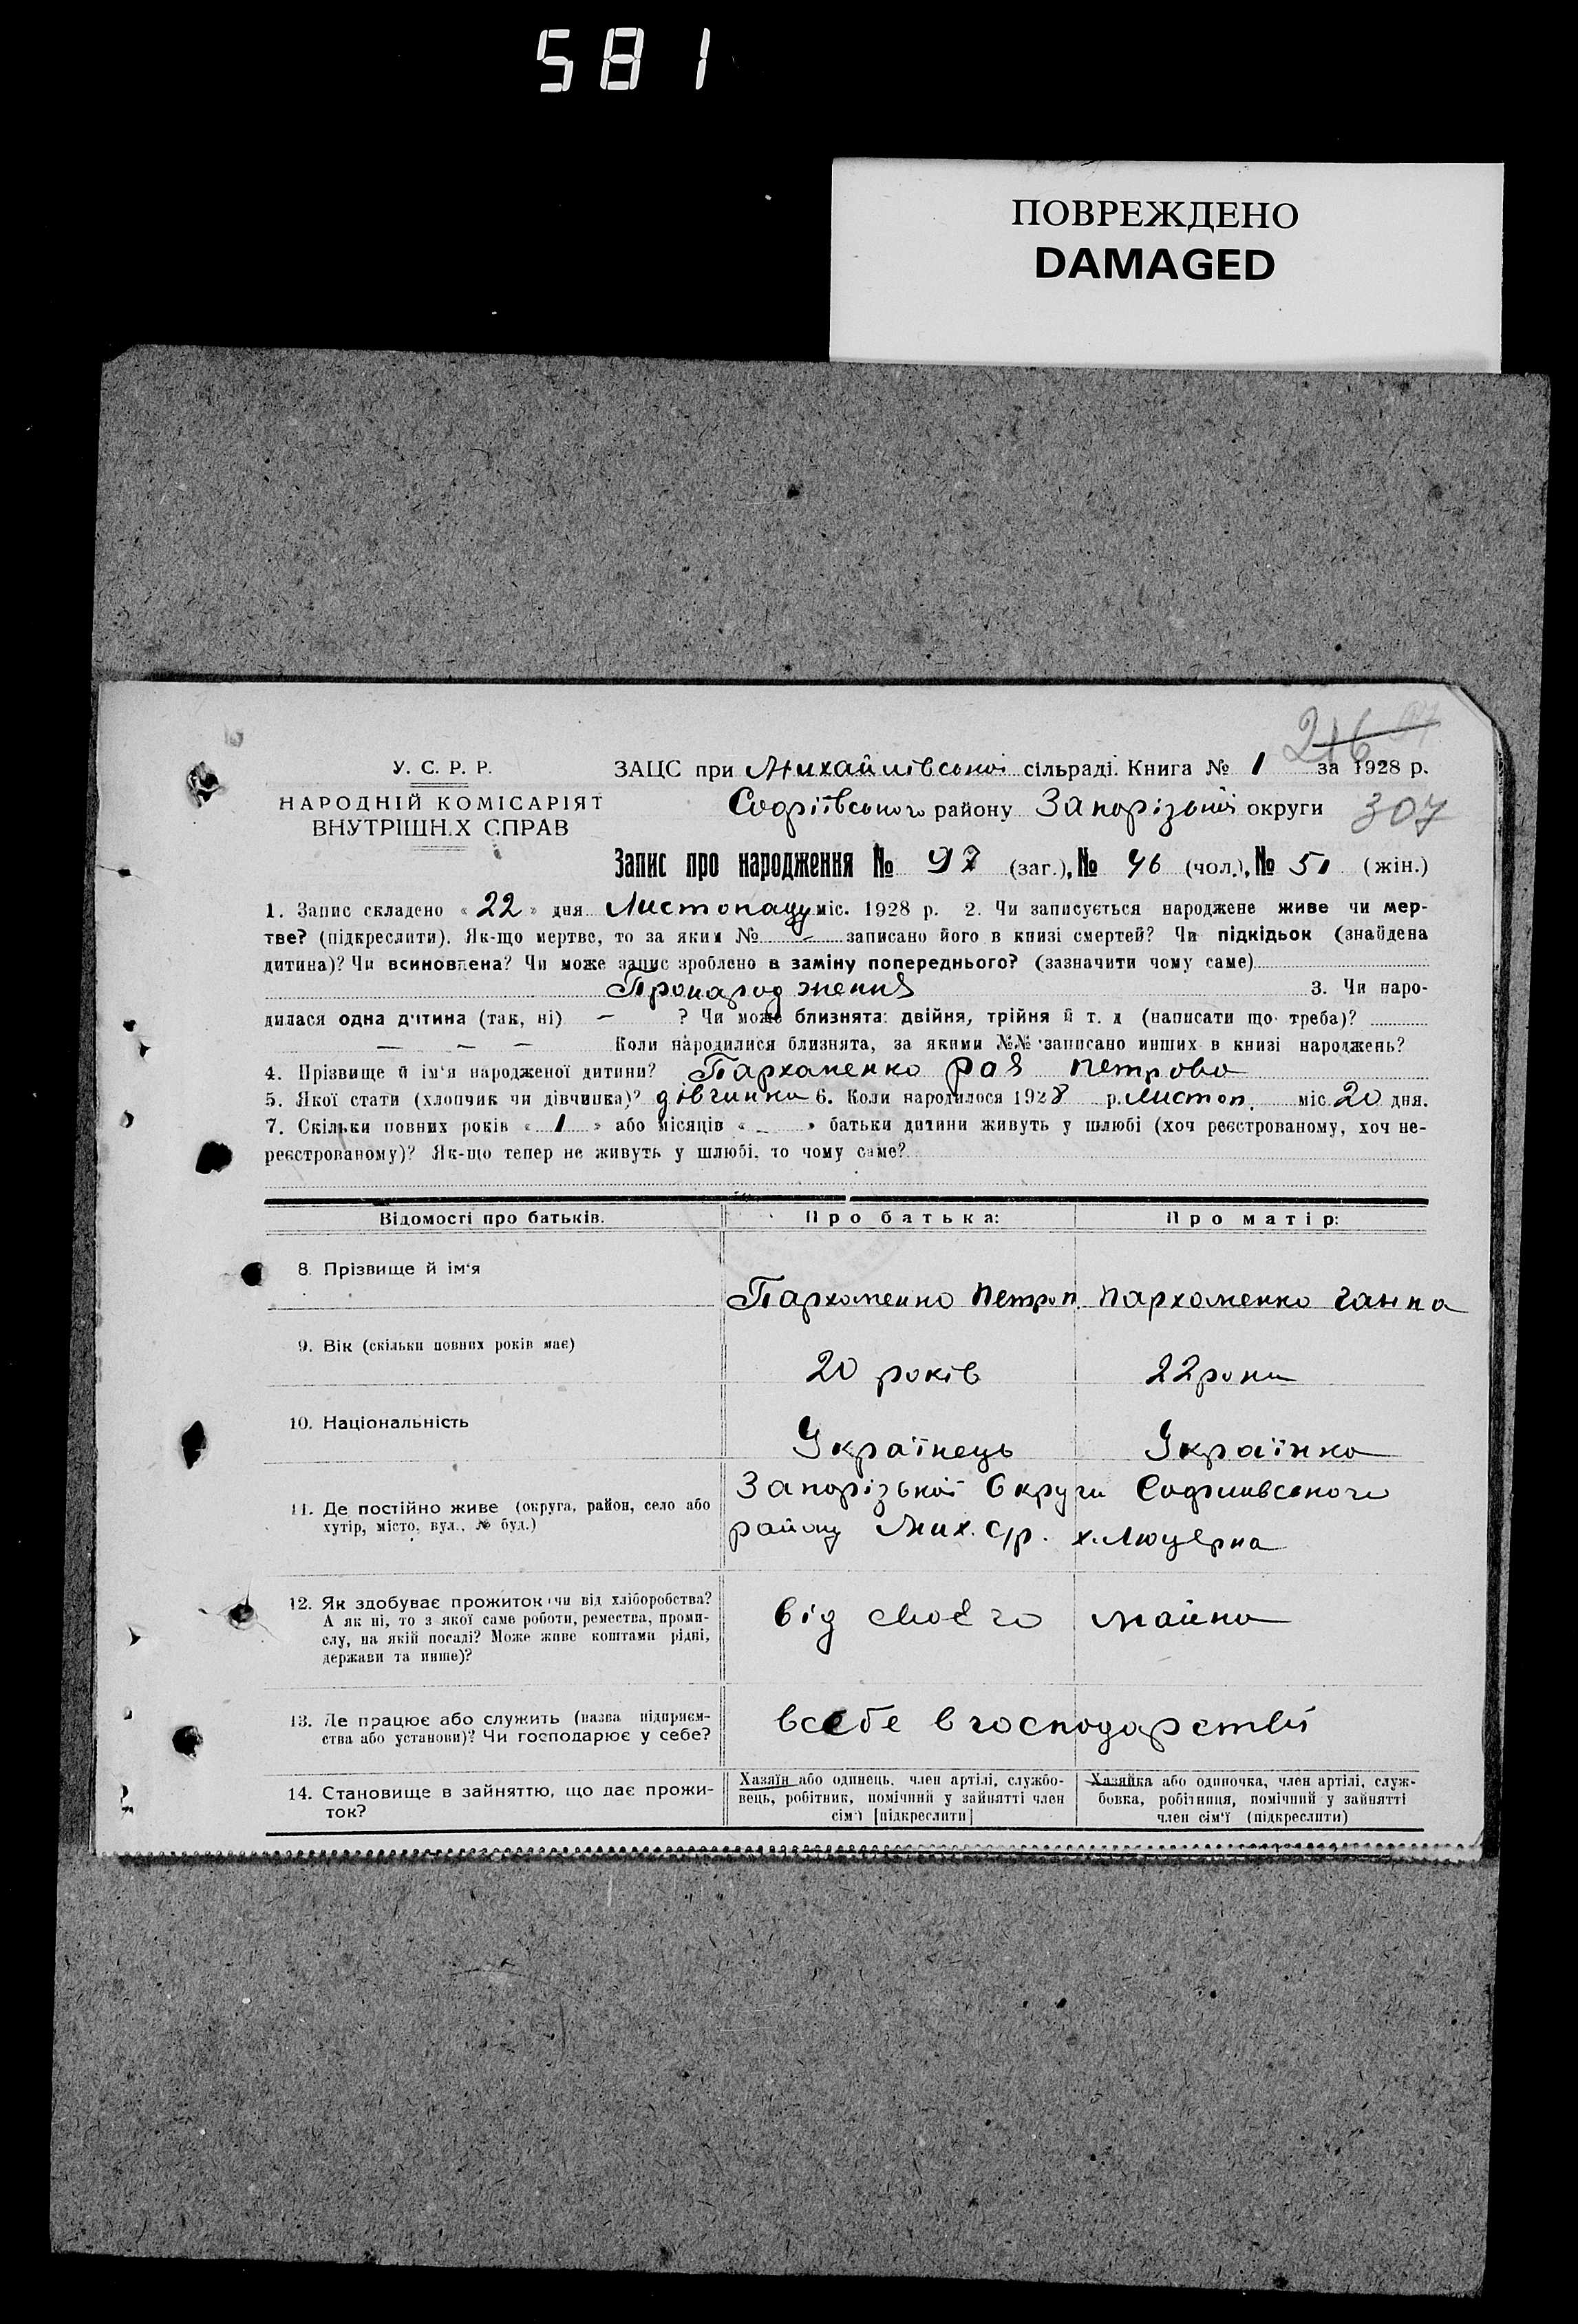 581
ПОВРЕЖДЕНО
DAMAGED
216
У. С. Р. Р.
НАРОДНІЙ КОМІСАРІЯТ
ВНУТРІШН.Х СПРАВ
ЗАЦС при Михайлівської сільраді. Книга № 1 за 1928 р.
Софіївського району Запорізької округи 307
Запис про народження № 97 (заг.), № 46 (чол.), № 51 (жін.)
1. Запис складено « 22 » дня Листопаду міс. 1928 р. 2. Чи записується народжене живе чи мер-
тве? (підкреслити). Як-що мертве, то за яким № - записано його в книзі смертей? Чи підкідьок (знайдена
дитина)? Чи всиновлена? Чи може запис зроблено в заміну попереднього? (зазначити чому саме)
Пронарод женния 3. Чи наро-
дилася одна дитина (так, ні) - ? Чи може близнята: двійня, трійня й т. д (написати що треба)?
- - - Коли народилися близнята, за якими №№ записано инших в книзі народжень?
4. Прізвище й ім'я народженої дитини? Пархоменко рая петрова
5. Якої стати (хлопчик чи дівчинка)? дівчинка 6. Коли народилося 1928 р. Листоп. міс. 20 дня.
7. Скільки повних років « 1 » або місяців « - » батьки дитини живуть у шлюбі (хоч реєстрованому, хоч не-
реєстрованому)? Як-що тепер не живуть у шлюбі, то чому саме?
Відомості про батьків. Про батька: Про матір:
8. Прізвище й ім'я
Пархоменко петро п. пархоменко ганна
9. Вік (скільки повних років має)
20 років 22 роки
10. Національність
Українець Українка
11. Де постійно живе (округа, район, село або
хутір, місто, вул., № буд.)
Запорізької Округи Софиивського
району Мих. с/р. х. Люцерна
12. Як здобуває прожиток чи від хліборобства?
А як ні, то з якої саме роботи, ремества, проми-
слу, на якій посаді? Може живе коштами рідні,
держави та инше)?
від своєго майна
13. Де працює або служить (назва підприєм-
ства або установи)? Чи господарює у себе?
всебе в господарстві
14. Становище в зайняттю, що дає прожи-
ток?
Хазяїн або одинець, член артілі, службо-
вець, робітник, помічний у зайнятті член
сім'ї [підкреслити]
Хазяйка або одиночка, член артілі, служ-
бовка, робітниця, помічний у зайнятті
член сім'ї (підкреслити)